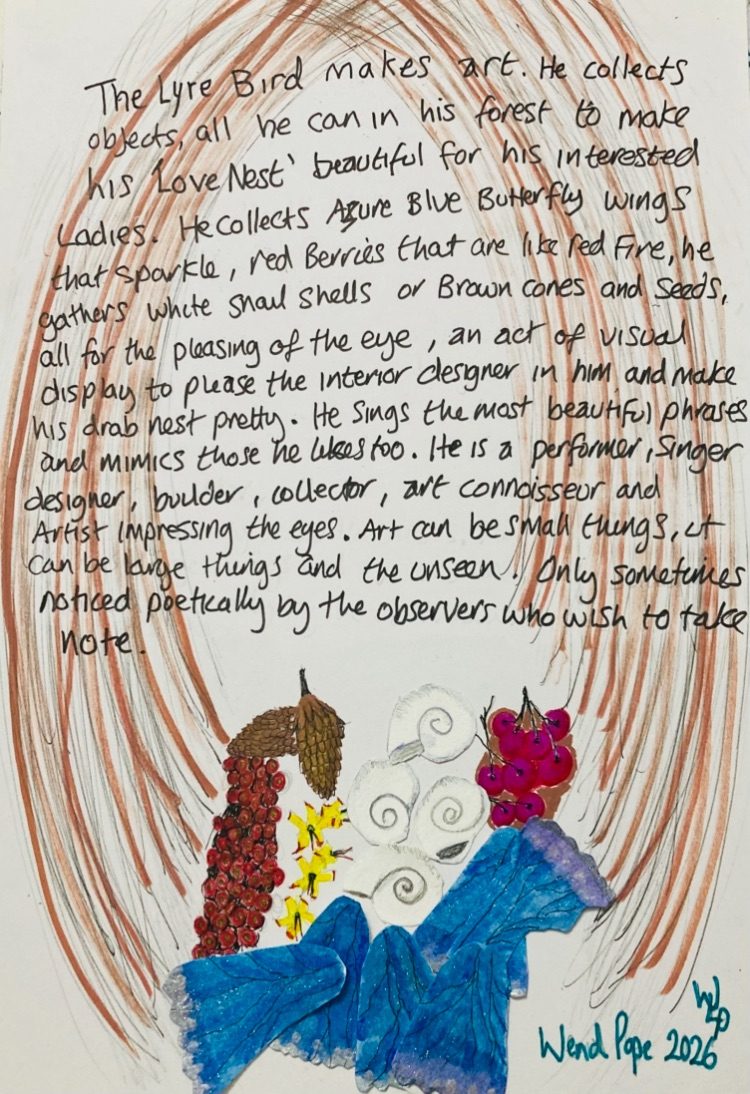 The Lyre Bird makes art. He collects
objects, all he can in his forest to make
his 'Love Nest' beautiful for his interested
Ladies. He collects Azure Blue Butterfly wings
that sparkle, red Berries that are like red Fire, he
gathers white snail shells or Brown cones and seeds,
all for the pleasing of the eye, an act of visual
display to please the interior designer in him and make
his drab nest pretty. He sings the most beautiful phrases
and mimics those he likes too. He is a performer, singer
designer, builder, collector, art connoisseur and
Artist impressing the eyes. Art can be small things, it
can be large things and the unseen. Only sometimes
noticed poetically by the observers who wish to take
note.
Wend Pope 2026